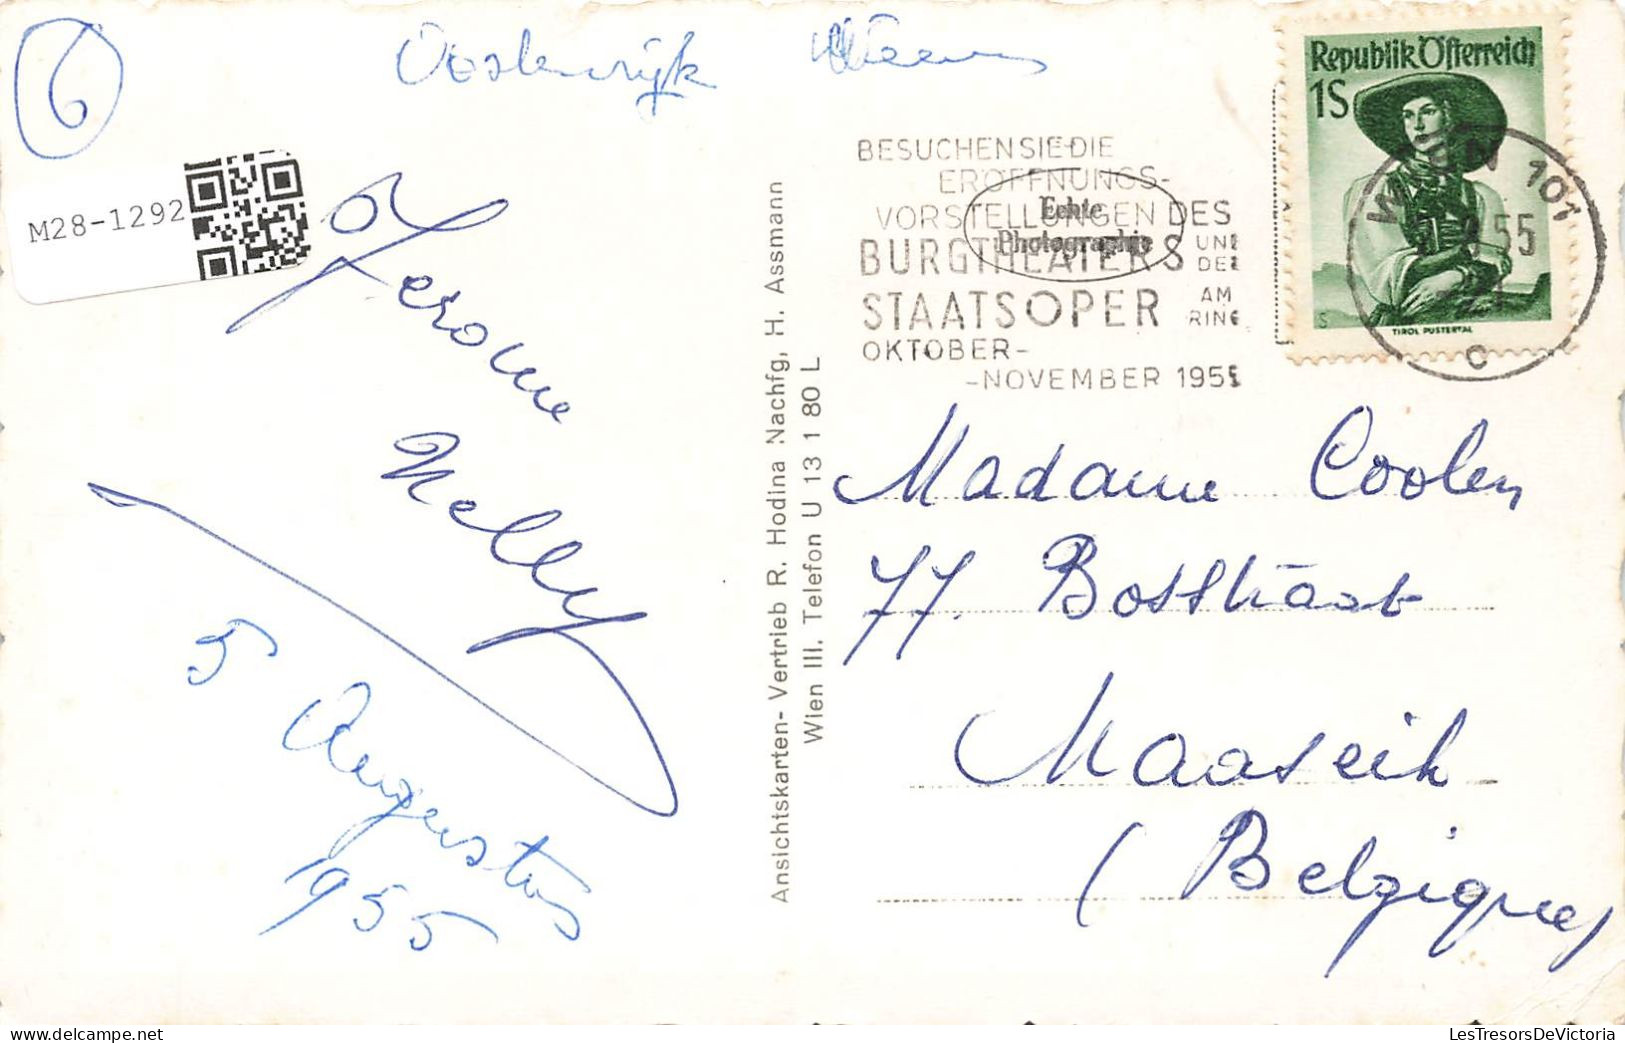 6
Oostenrijk Weenen
M28-1292
Jerome
Nelly
5 Augustus
1955
Ansichtskarten- Vertrieb R. Hodina Nachfg, H. Assmann
Wien III. Telefon U 13 1 80 L
BESUCHEN SIE DIE
ERÖFFNUNGS-
VORSTELLUNGEN DES
BURGTHEATERS UND DER
STAATSOPER AM RING
OKTOBER-
-NOVEMBER 1955
Echte
Photographie
Republik Österreich
1S
TIROL PUSTERTAL
WIEN 101
55
C
Madame Coolen
77. Bosstraat
Maaseik
(Belgique)
delcampe.net
LesTresorsDeVictoria